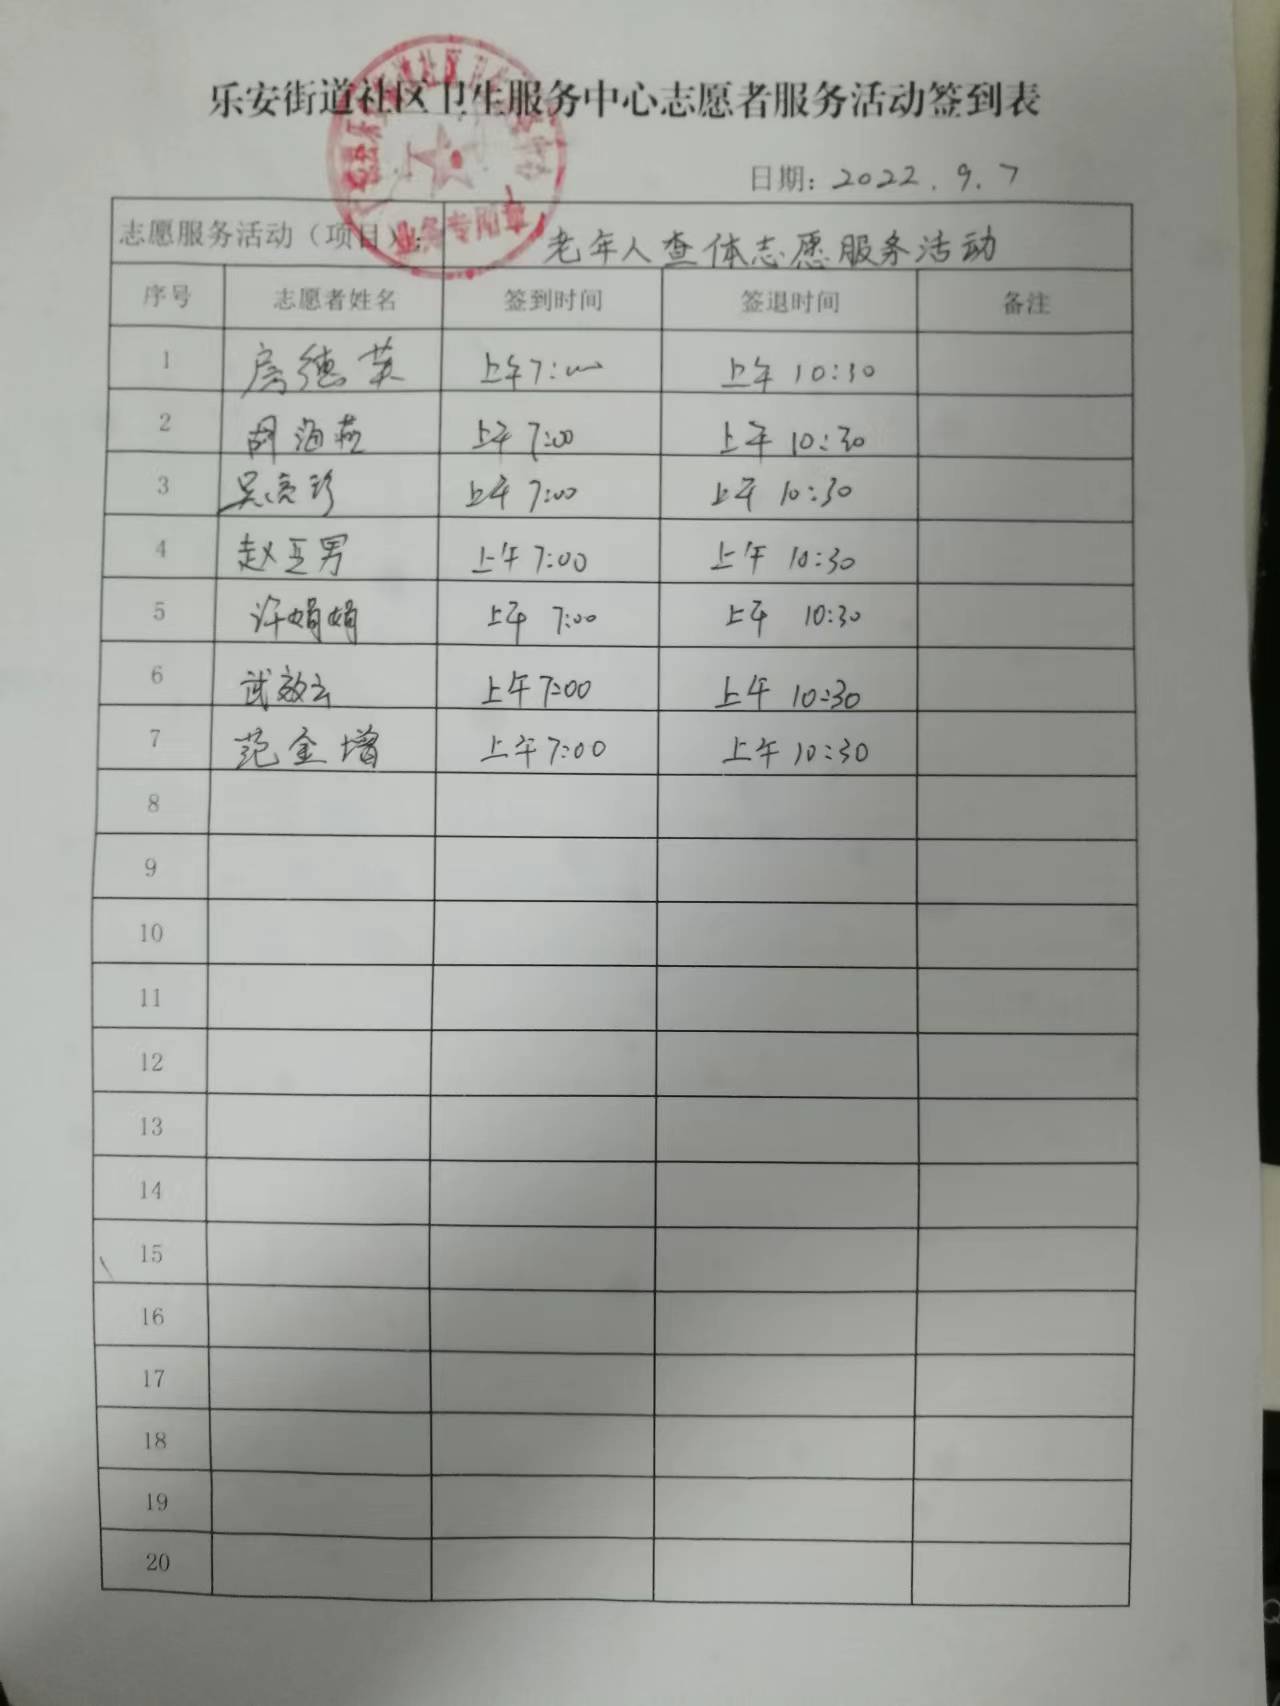 乐安街道社区卫生服务中心志愿者服务活动签到表
日期：2022.9.7
志愿服务活动（项目）： 老年人查体志愿服务活动
序号 志愿者姓名 签到时间 签退时间 备注
1 房德英 上午7:00 上午 10:30
2 胡海燕 上午 7:00 上午 10:30
3 吴亮珍 上午 7:00 上午 10:30
4 赵亚男 上午 7:00 上午 10:30
5 许娟娟 上午 7:00 上午 10:30
6 武效云 上午 7:00 上午 10:30
7 范金增 上午 7:00 上午 10:30
8
9
10
11
12
13
14
15
16
17
18
19
20
业务专用章